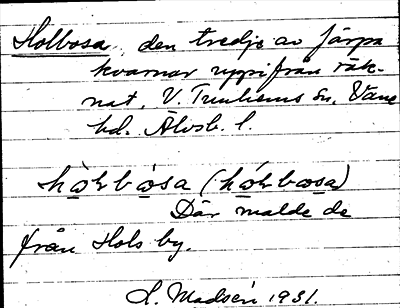 Holbosa, den tredje av Järpa
kvarnar uppifrån räk-
nat, V. Tunhems sn, Väne
hd. Älvsb. l.
hòɫrbòsa (hóɫrbosa)
Där malde de
från Hols by.
L. Madsén 1931.